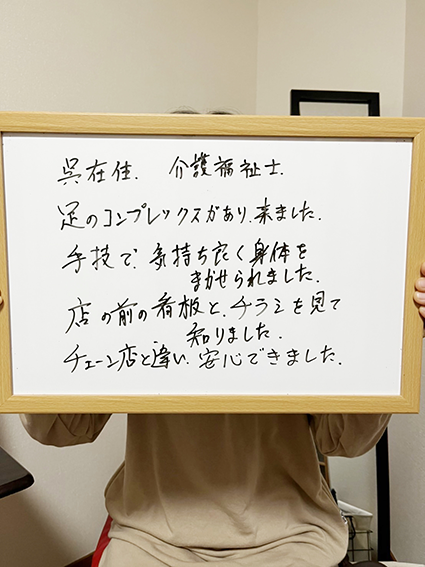 呉在住. 介護福祉士.
足のコンプレックスがあり、来ました.
手技で、気持ち良く身体を
まかせられました.
店の前の看板と、チラシを見て
知りました.
チェーン店と違い、安心できました.